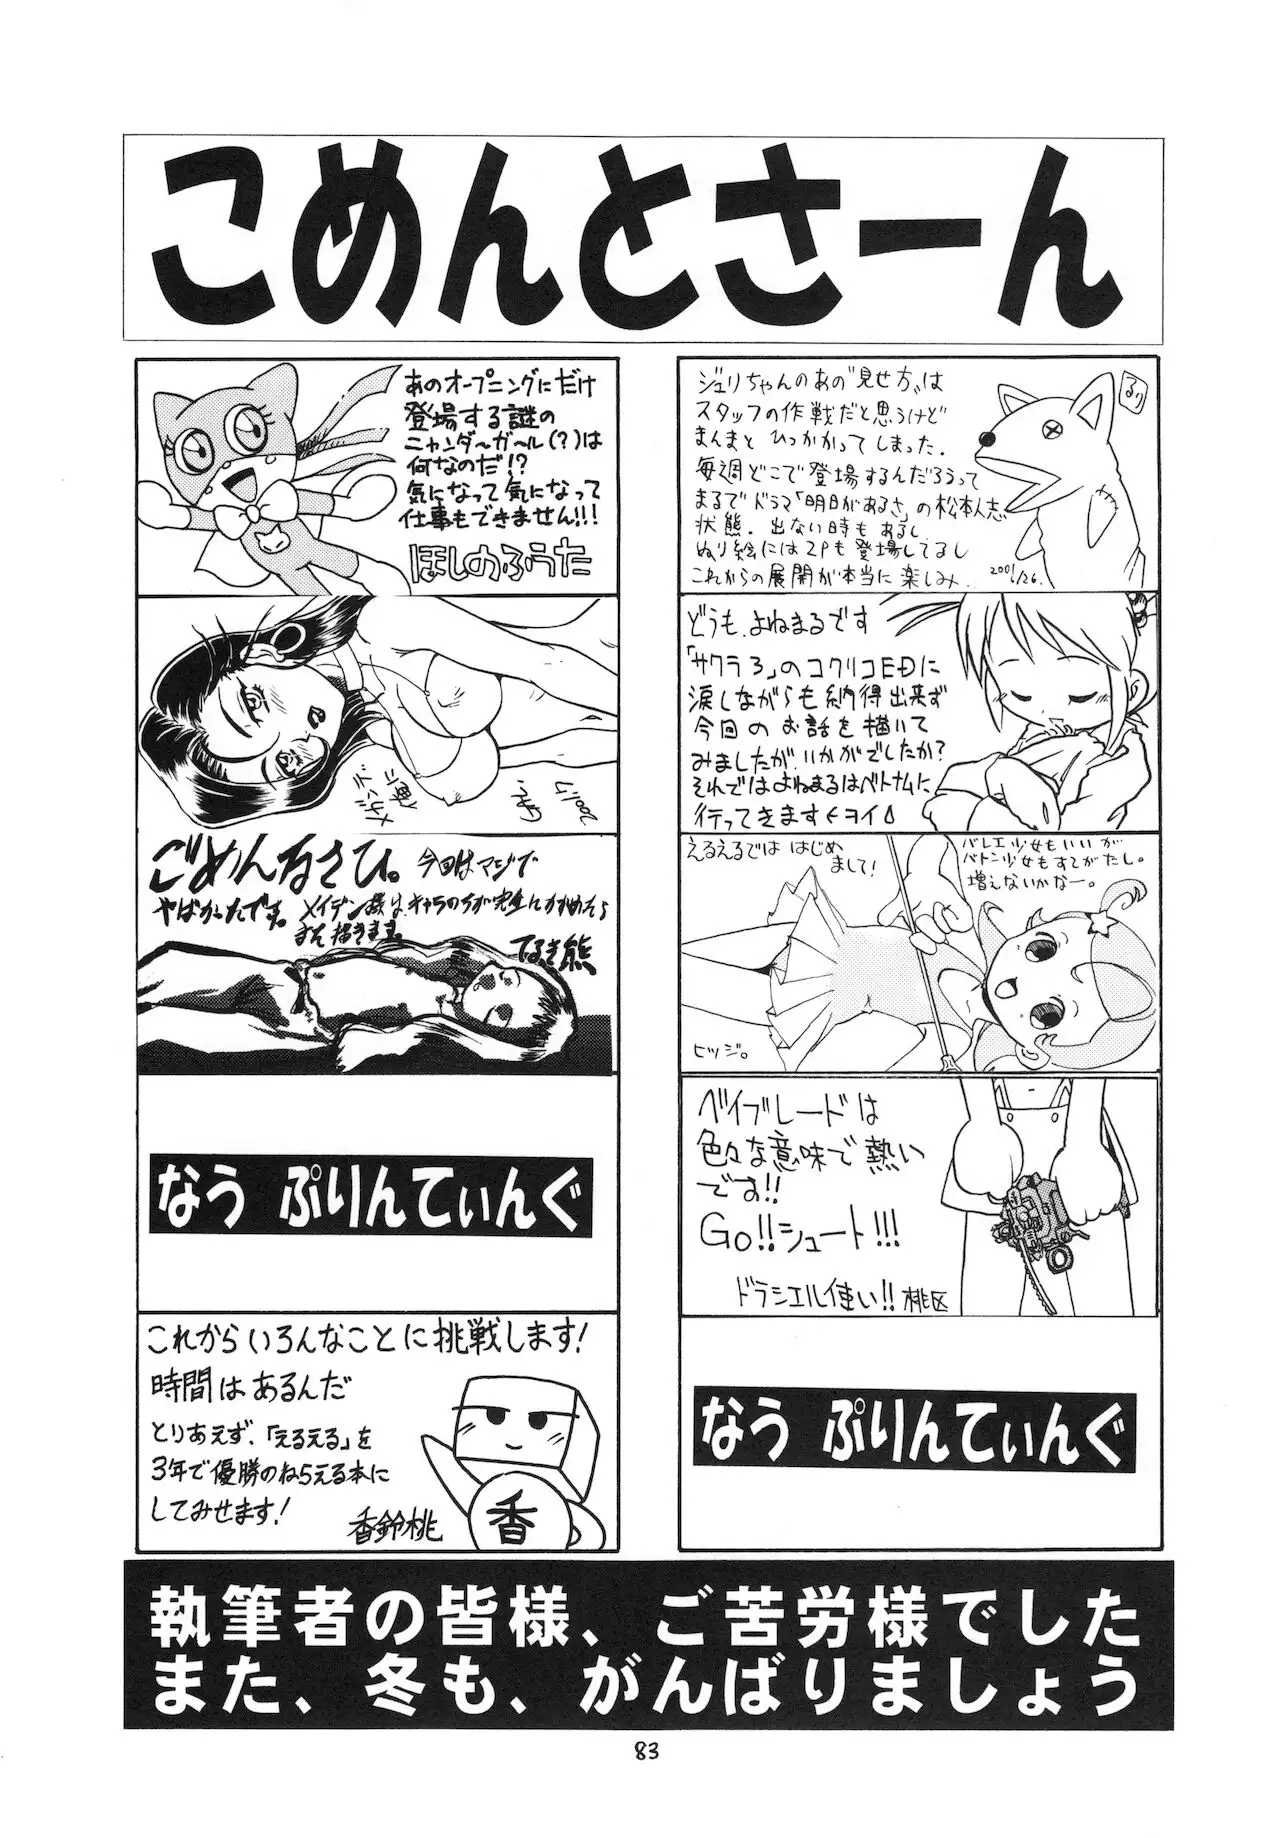 こめんとさーん
ジュリちゃんのあの"見せ方"は
スタッフの作戦だと思うけど
まんまと ひっかかってしまった.
毎週どこで登場するんだろうって
まるでドラマ「明日があるさ」の松本人志
状態. 出ない時もあるし
ぬり絵には2Pも登場してるし
これからの展開が本当に楽しみ.
るり
どうも.よねまるです
「サクラ3」のコクリコEDに
涙しながらも納得出来ず
今回のお話を描いて
みましたが.いかがでしたか?
それではよねまるはベトナムに
行ってきます
えるえるでは はじめ
まして!
バレエ少女もいいが
バトン少女もすてがたし。
増えないかなー。
ヒツジ。
ベイブレードは
色々な意味で熱い
です!!
Go!!シュート!!!
ドラシエル使い!! 桃区
なう ぷりんてぃんぐ
あのオープニングにだけ
登場する謎の
ニャンダ〜ガ〜ル(?)は
何なのだ!?
気になって気になって
仕事もできません!!!
ほしのふうた
ごめんなさひ。今回はマジで
やばかったです。
てるき熊
なう ぷりんてぃんぐ
これからいろんなことに挑戦します!
時間はあるんだ
とりあえず、「えるえる」を
3年で優勝のねらえる本に
してみせます!
香鈴桃
香
執筆者の皆様、ご苦労様でした
また、冬も、がんばりましょう
83